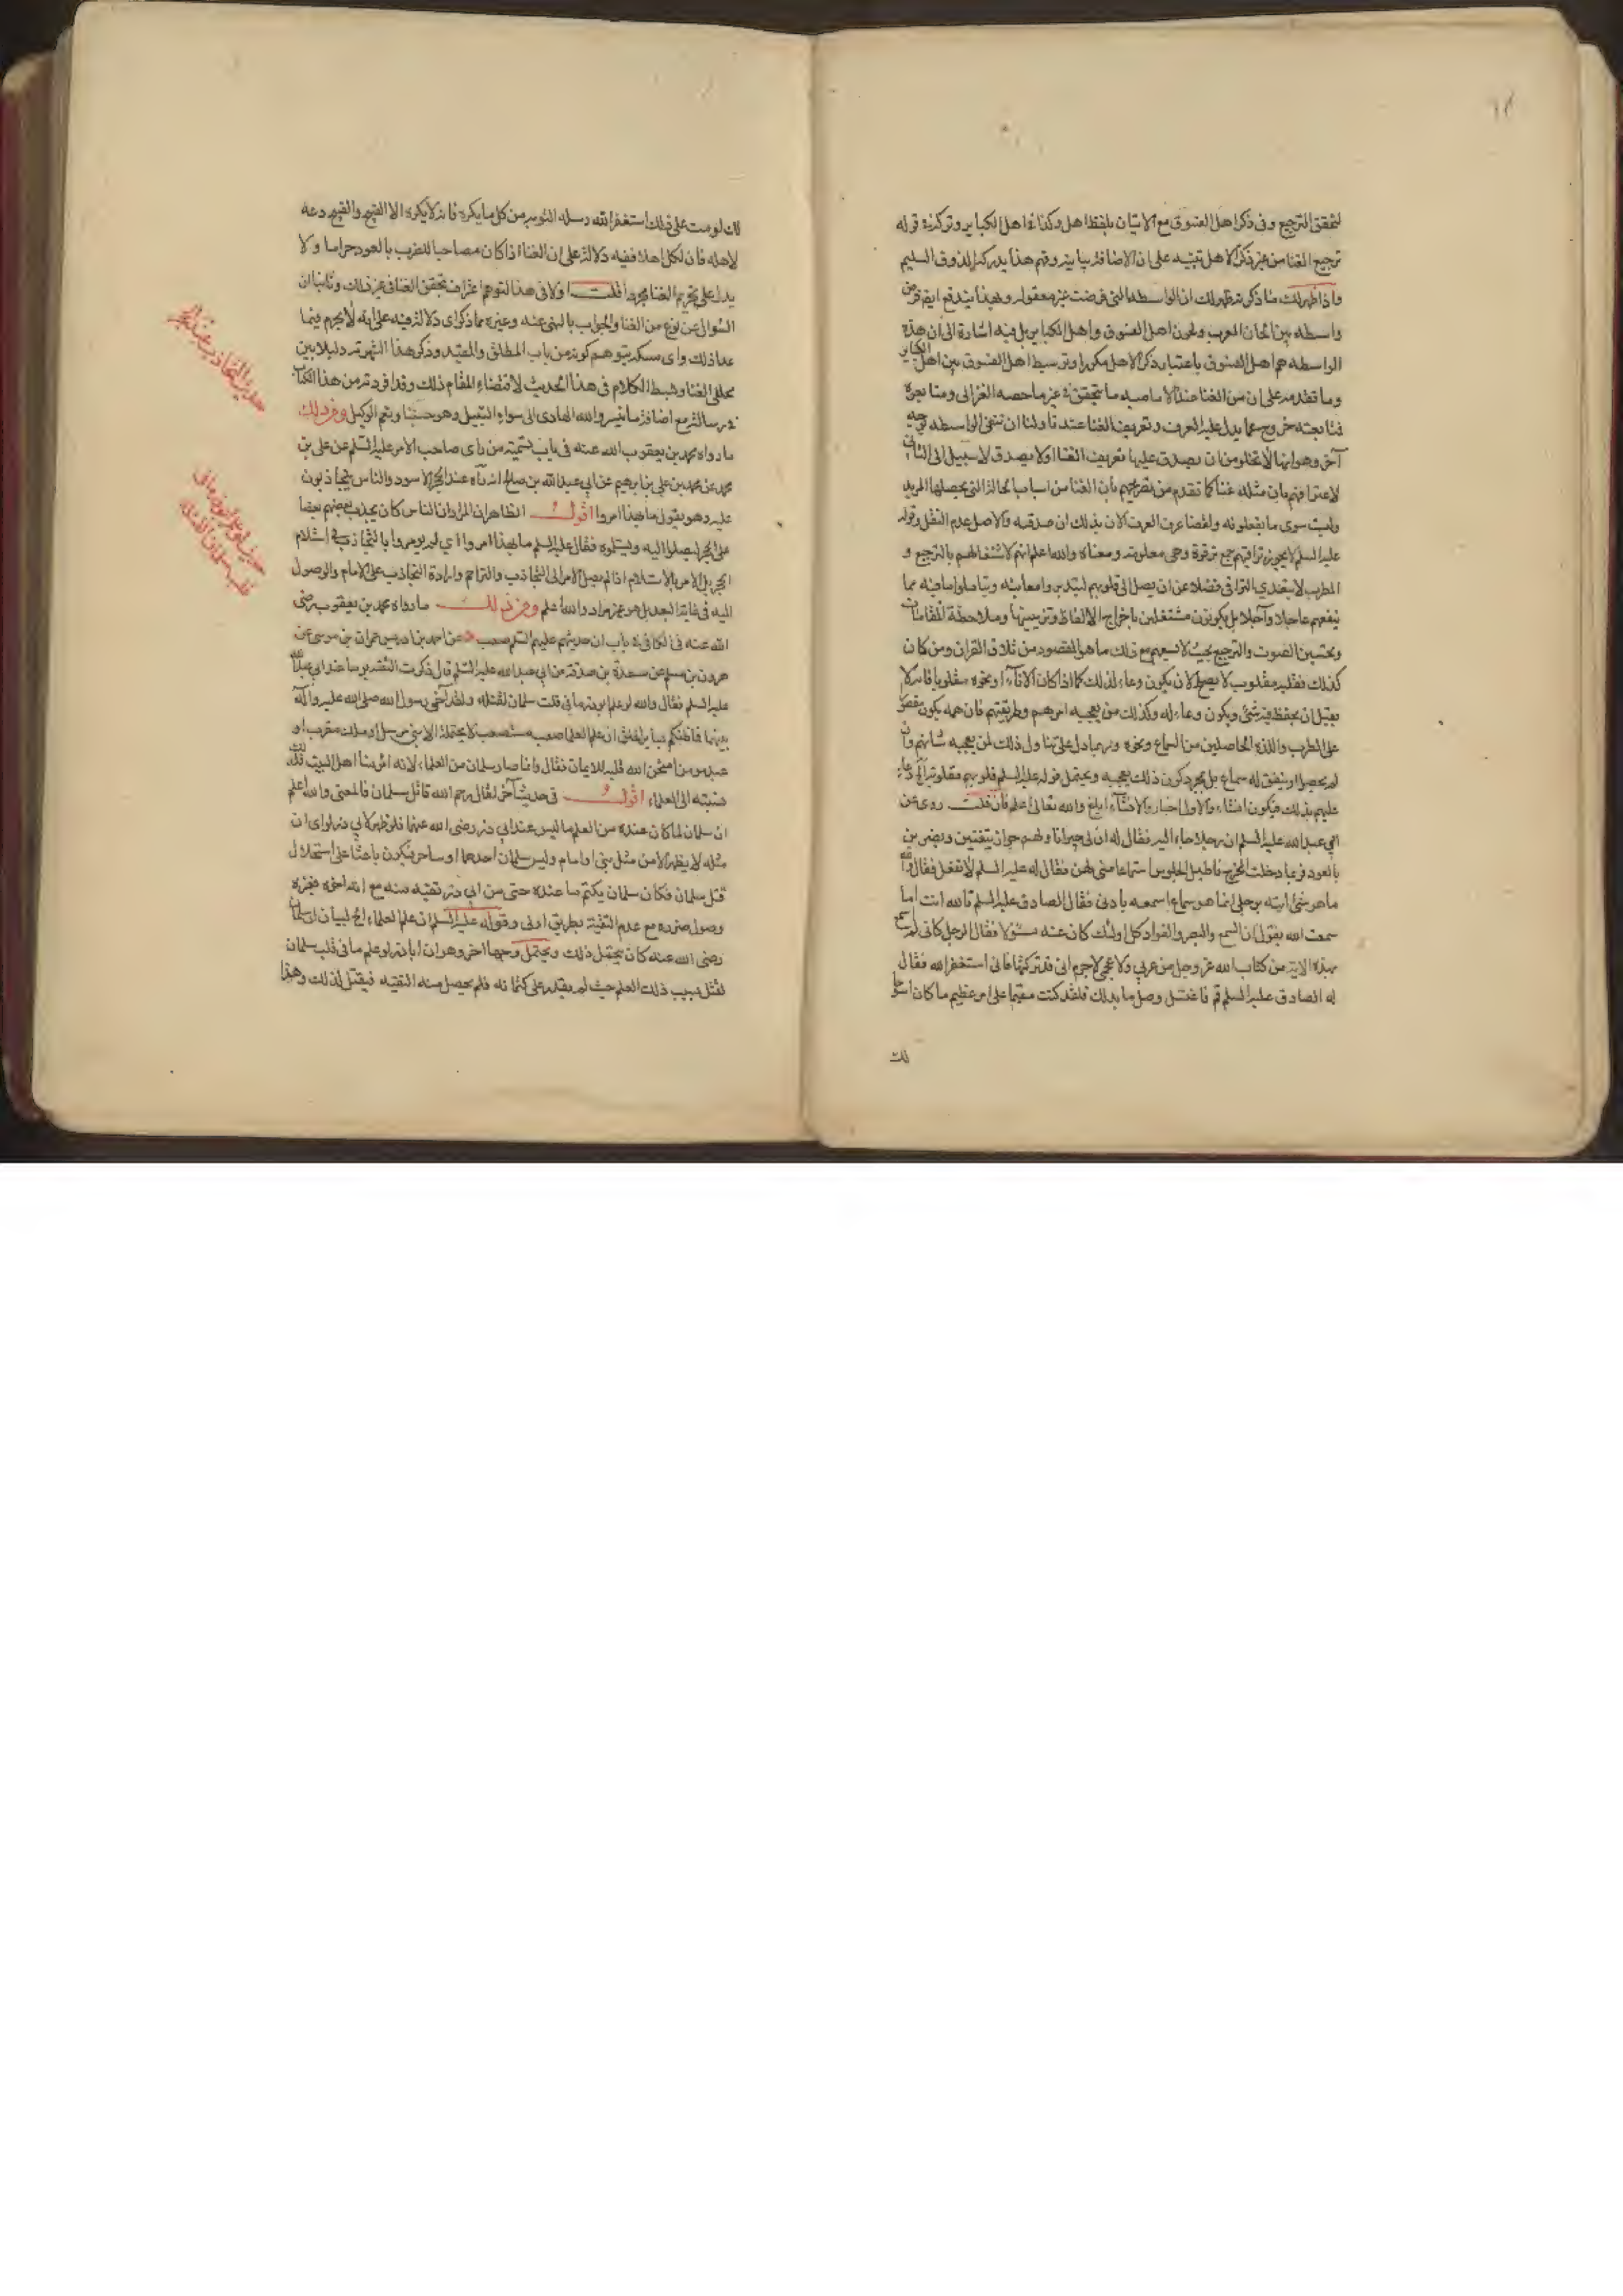 لتحقق الترجيع وفى ذكر اهل الفسوق مع الاتيان بلفظ اهل وكذا فى اهل الكباير وتركه فى قوله
ترجيع الغنا من غير ذكر الاهل تنبيه على ان الاضافة بيانية وفهم هذا يدركه الذوق السليم
واذا ظهر لك ما ذكرته ظهر لك ان الواسطه التى فرضت غير معقوله وبهذا يندفع ايضا فرض
واسطه بين الحان العرب ولحون اهل الفسوق واهل الكباير بل فيه اشارة الى ان هذه
الواسطه هم اهل الفسوق باعتبار ذكر الاهل مكررا وتوسيط اهل الفسوق بين اهل الكباير
وما تقدمه على ان من الغنا عند الاماميه ما يتحقق فى غير ما خصه الغزالى ومتابعوه
فمتابعته خروج عما يدل عليه العرف وتعريف الغنا عندنا ولنا ان ننفى الواسطه بوجه
آخر وهو انها لا تخلو من ان يصدق عليها تعريف الغنا اولا يصدق لا سبيل الى الثانى
لاعترافهم بان مثله غنا كما تقدم من تصريحهم بان الغنا من اسباب الحالة التى يحصلها المريد
وليت سوى ما يفعلونه ولقضا عرف العرب الان بذلك ان صدقه والاصل عدم النقل وقوله
عليه السلم لا يجوز تراقيهم جمع ترقوة وهى معلومة ومعناه والله اعلم انهم لاشتغالهم بالترجيع و
المطرب لا يتعدى التراقى فضلا عن ان يصل الى قلوبهم ليتدبروا معانيه ويتاملوا ما فيه مما
ينفعهم عاجلا وآجلا بل يكونون مشتغلين باخراج الالفاظ وتزيينها وملاحظة المقامات
وتحسين الصوت والترجيع بحيث لا يسعهم مع ذلك ما هو المقصود من تلاوة القران ومن كان
كذلك فقلبه مقلوب لا يصلح لان يكون وعاء لذلك كما اذا كان الاناء او نحوه مقلوبا فانه لا
يقبل ان يحفظ فيه شئ ويكون وعاء له وكذلك من يعجبه امرهم وطريقتهم فان همه يكون مقصورا
على الطرب واللذه الحاصلين من السماع ونحوه وربما دل على تناول ذلك لمن يعجبه شانهم وان
لم يحصل او يتفق له سماع بل بمجرد كون ذلك يعجبه ويحتمل قوله عليه السلم قلوبهم مقلوبة الخ دعاء
عليهم بذلك فيكون انشاء والاول اخبار والانشاء ابلغ والله تعالى اعلم فان قلت روى عن
ابي عبد الله عليه السلم ان رجلا جاء اليه فقال له ان لى جيرانا ولهم جوار يتغنين ويضربن
بالعود فربما دخلت المخرج فاطيل الجلوس استماعا منى لهن فقال له عليه السلم لا تفعل فقال والله
ما هو شئ اتيته برجلى انما هو سماع اسمعه باذنى فقال الصادق عليه السلم تالله انت اما
سمعت الله يقول ان السمع والبصر والفواد كل اولئك كان عنه مسؤلا فقال الرجل كانى لم اسمع
بهذه الاية من كتاب الله عز وجل من عربي ولا عجمى لا جرم انى قد تركتها فانى استغفر الله فقال
له الصادق عليه السلم قم فاغتسل وصل ما بدا لك فلقد كنت مقيما على امر عظيم ما كان اسوأ
لك
حالك لو مت على ذلك استغفر الله وسله التوبه من كل ما يكره فانه لا يكره الا القبيح والقبيح دعه
لاهله فان لكل اهلا ففيه دلالة على ان الغنا اذا كان مصاحبا للضرب بالعود حراما ولا
يدل على تحريم الغنا مجردا قلت اولا فى هذا التوهم اعتراف بتحقق الغنا فى غير ذلك وثانيا ان
السؤال عن نوع من الغنا والجواب بالنهى عنه وغيره مما ذكر اى دلالة فيه على انه لا يحرم فيما
عدا ذلك واى مسكة يتوهم كونه من باب المطلق والمقيد وذكر هذا الشهرته دليلا بين
محللى الغنا وبسط الكلام فى هذا الحديث لاقتضاء المقام ذلك وقد افردته من هذا الكتاب
فى رسالة مع اضافة ما تيسر والله الهادى الى سواء السبيل وهو حسبنا ونعم الوكيل ومن ذلك
ما رواه محمد بن يعقوب الله عنه فى باب تسمية من راى صاحب الامر عليه السلم عن على بن
محمد عن محمد بن على بن ابرهيم عن ابي عبد الله بن صالح انه رآه عند الحجر الاسود والناس يتجاذبون
عليه وهو يقول ما بهذا امروا اقول الظاهر ان المراد ان الناس كان يجذب بعضهم بعضا
على الحجر ليصلوا اليه ويستلموه فقال عليه السلم ما بهذا امروا اي لم يومروا بالتجاذب فى استلام
الحجر بل الامر بالاستلام اذا لم يصل الامر الى التجاذب والتزاحم وارادة التجاذب على الامام والوصول
اليه فى غاية البعد بل هو غير مراد والله اعلم ومن ذلك ما رواه محمد بن يعقوب رضى
الله عنه فى الكافى فى باب ان حديثهم عليهم السلم صعب عن احمد بن ادريس عن عمران بن موسى عن
هرون بن مسلم عن مسعدة بن صدقة عن ابي عبد الله عليه السلم قال ذكرت التقيه يوما عند ابي عبد الله
عليه السلم فقال والله لو علم ابو ذر ما فى قلب سلمان لقتله ولقد آخى رسول الله صلى الله عليه وآله
بينهما فما ظنكم بساير الخلق ان علم العلما صعب مستصعب لا يحتمله الا نبى مرسل او ملك مقرب او
عبد مومن امتحن الله قلبه للايمان فقال وانما صار سلمان من العلماء لانه امرؤ منا اهل البيت فلذلك
نسبته الى العلماء اقول فى حديث آخر لقال رحم الله قاتل سلمان فالمعنى والله اعلم
ان سلمان لما كان عنده من العلم ما ليس عند ابي ذر رضى الله عنهما فلو ظهر لابي ذر لراى ان
مثله لا يظهر الا من مثل نبى او امام وليس سلمان احدهما او ساحر فيكون باعثا على استحلال
قتل سلمان فكان سلمان يكتم ما عنده حتى من ابي ذر تقيه منه مع انه اخوه فغيره
وصول ضرره مع عدم التقية بطريق اولى وقوله عليه السلم ان علم العلماء الخ لبيان ان سلمان
رضى الله عنه كان يحتمل ذلك ويحتمل وجها اخر وهو ان ابا ذر لو علم ما فى قلب سلمان
لقتل بسبب ذلك العلم حيث لم يقدر على كتمانه فلم يحصل منه التقيه فيقتل لذلك وهذا
حديث التجاذب عند الحجر
حديث لو علم ابوذر ما فى
قلب سلمان لقتله